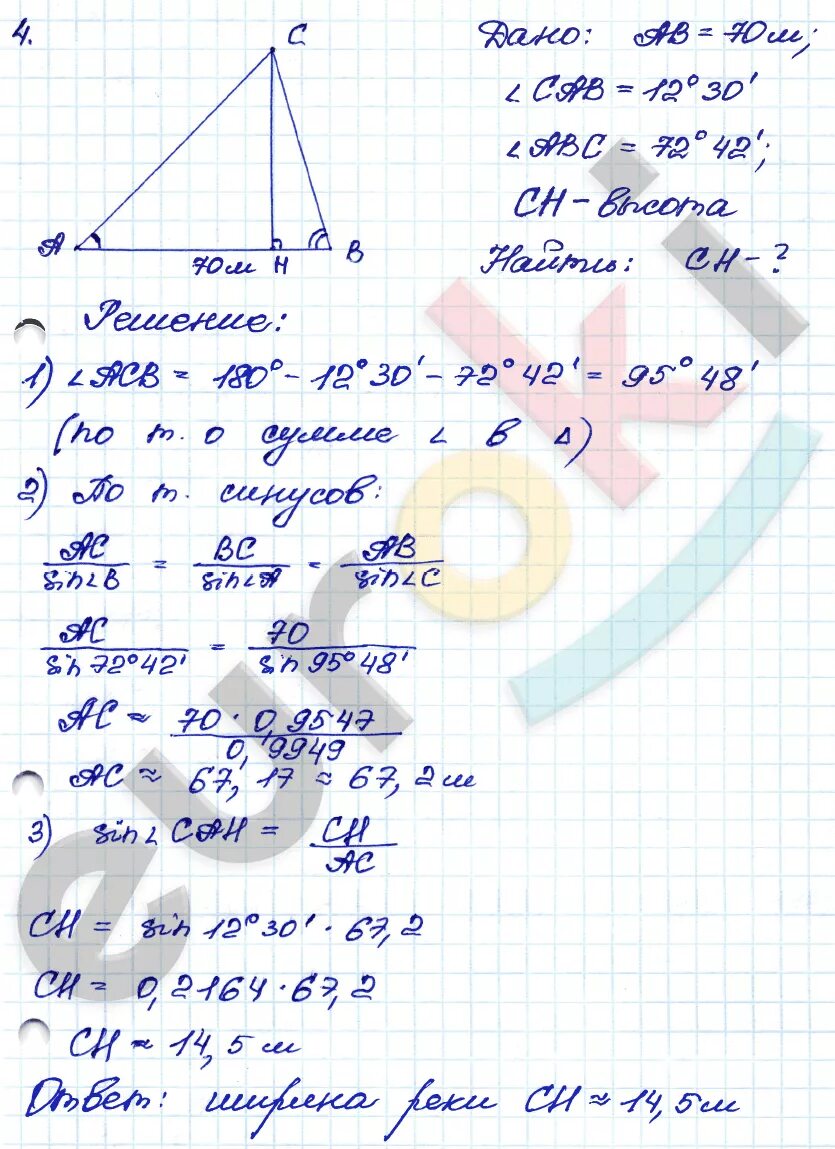 4.
C
A
B
70м H
Дано: AB = 70м;
∠CAB = 12°30'
∠ABC = 72°42';
CH - высота
Найти: CH - ?
Решение:
1) ∠ACB = 180° - 12°30' - 72°42' = 95°48'
(по т. о сумме ∠ в Δ)
2) По т. синусов:
AC/sin∠B = BC/sin∠A = AB/sin∠C
AC/sin 72°42' = 70/sin 95°48'
AC ≈ 70 · 0,9547/0,9949
AC ≈ 67,17 ≈ 67,2м
3) sin∠CAH = CH/AC
CH = sin 12°30' · 67,2
CH = 0,2164 · 67,2
CH ≈ 14,5 м
Ответ: ширина реки CH ≈ 14,5м
euroki